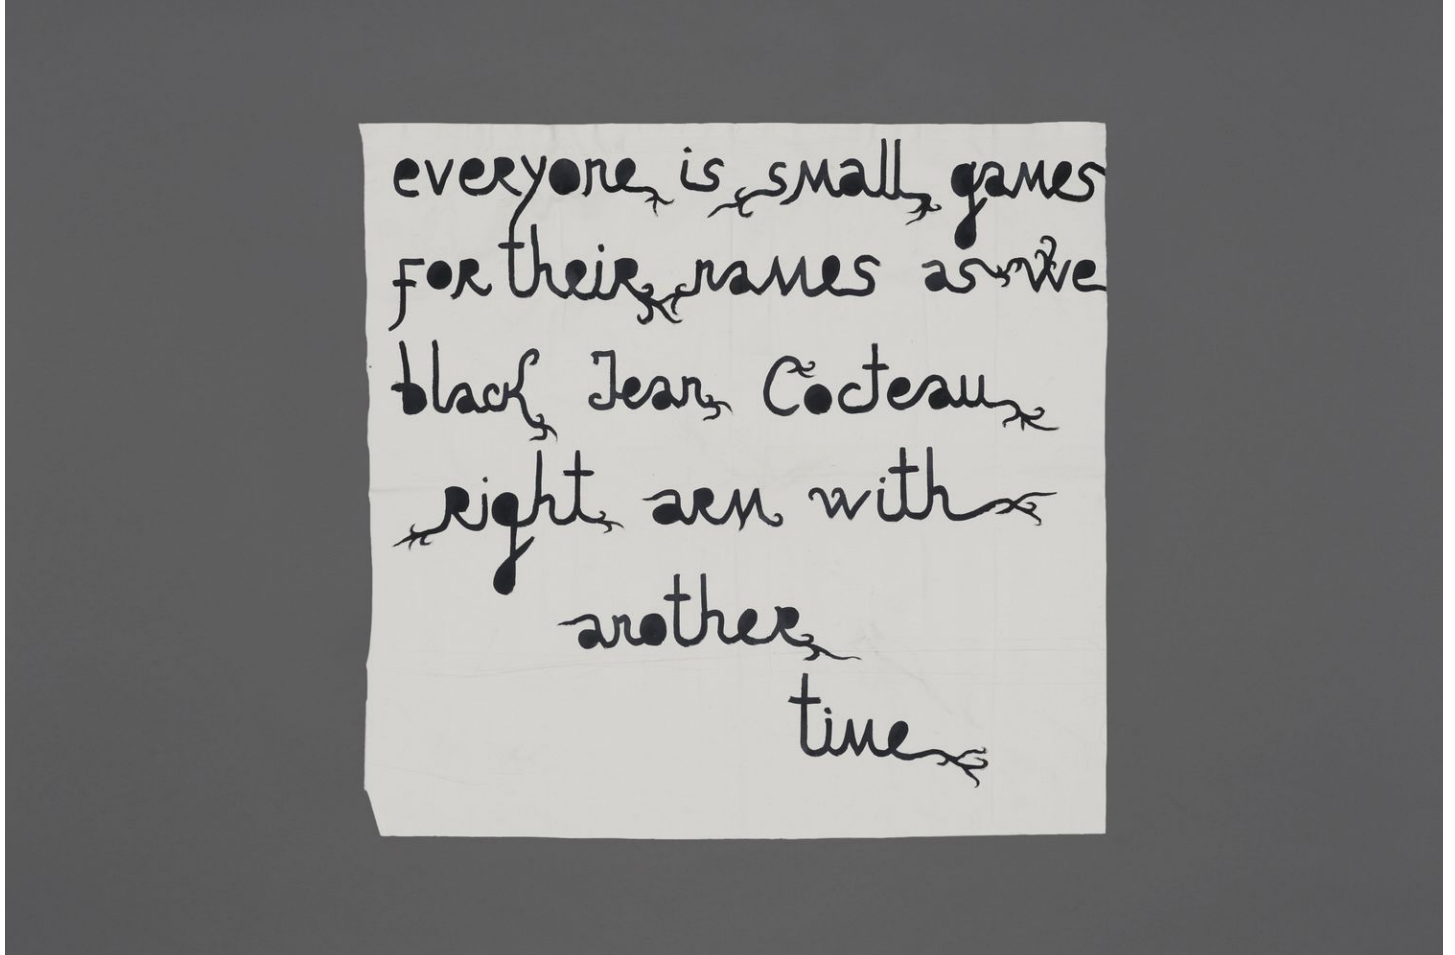 everyone is small games
for their names as we
black Jean Cocteau
right arm with
another
time